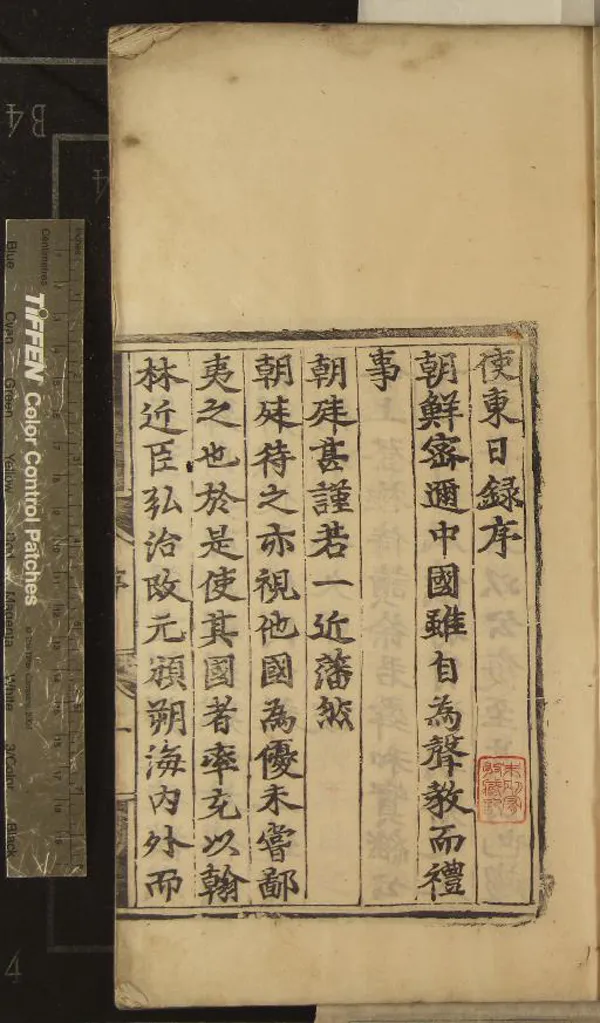 使東日録序
朝鮮密邇中國雖自為聲教而禮
事
朝殊甚謹若一近藩然
朝殊待之亦視他國為優未嘗鄙
夷之也於是使其國者率充以翰
林近臣弘治改元頒朔海内外而
B4
4
4
TIFFEN Color Control Patches
Centimetres
Blue
Cyan
Green
Yellow
Red
Magenta
White
3/Color
Black